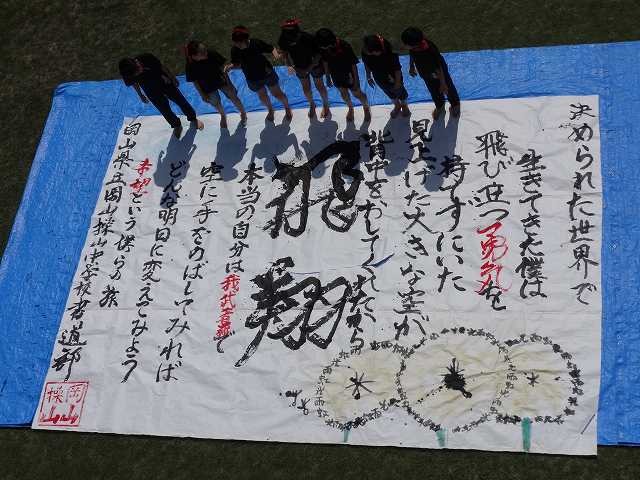 決められた世界で
生きてきた僕は
飛び立つ勇気を
持てずにいた
見上げた大きな空が
背中をおしてくれたから
飛翔
本当の自分は我武者羅で
空に手をのばしてみれば
どんな明日に変えてみよう
希望という僕らの旅
岡山県立岡山操山中学校書道部
岡山
操山